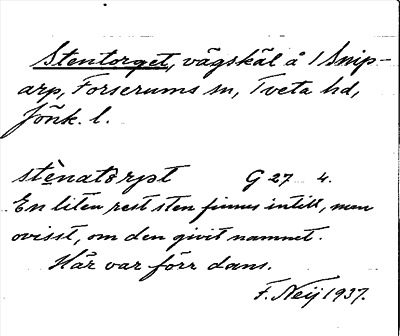 Stentorget, vägskäl å 1 Snip-
arp, Forserums sn, Tveta hd,
Jönk. l.
stènatɷrjət G 27 4.
En liten rest sten finnes intill, men
ovisst, om den givit namnet.
Här var förr dans.
F. Neij 1937.